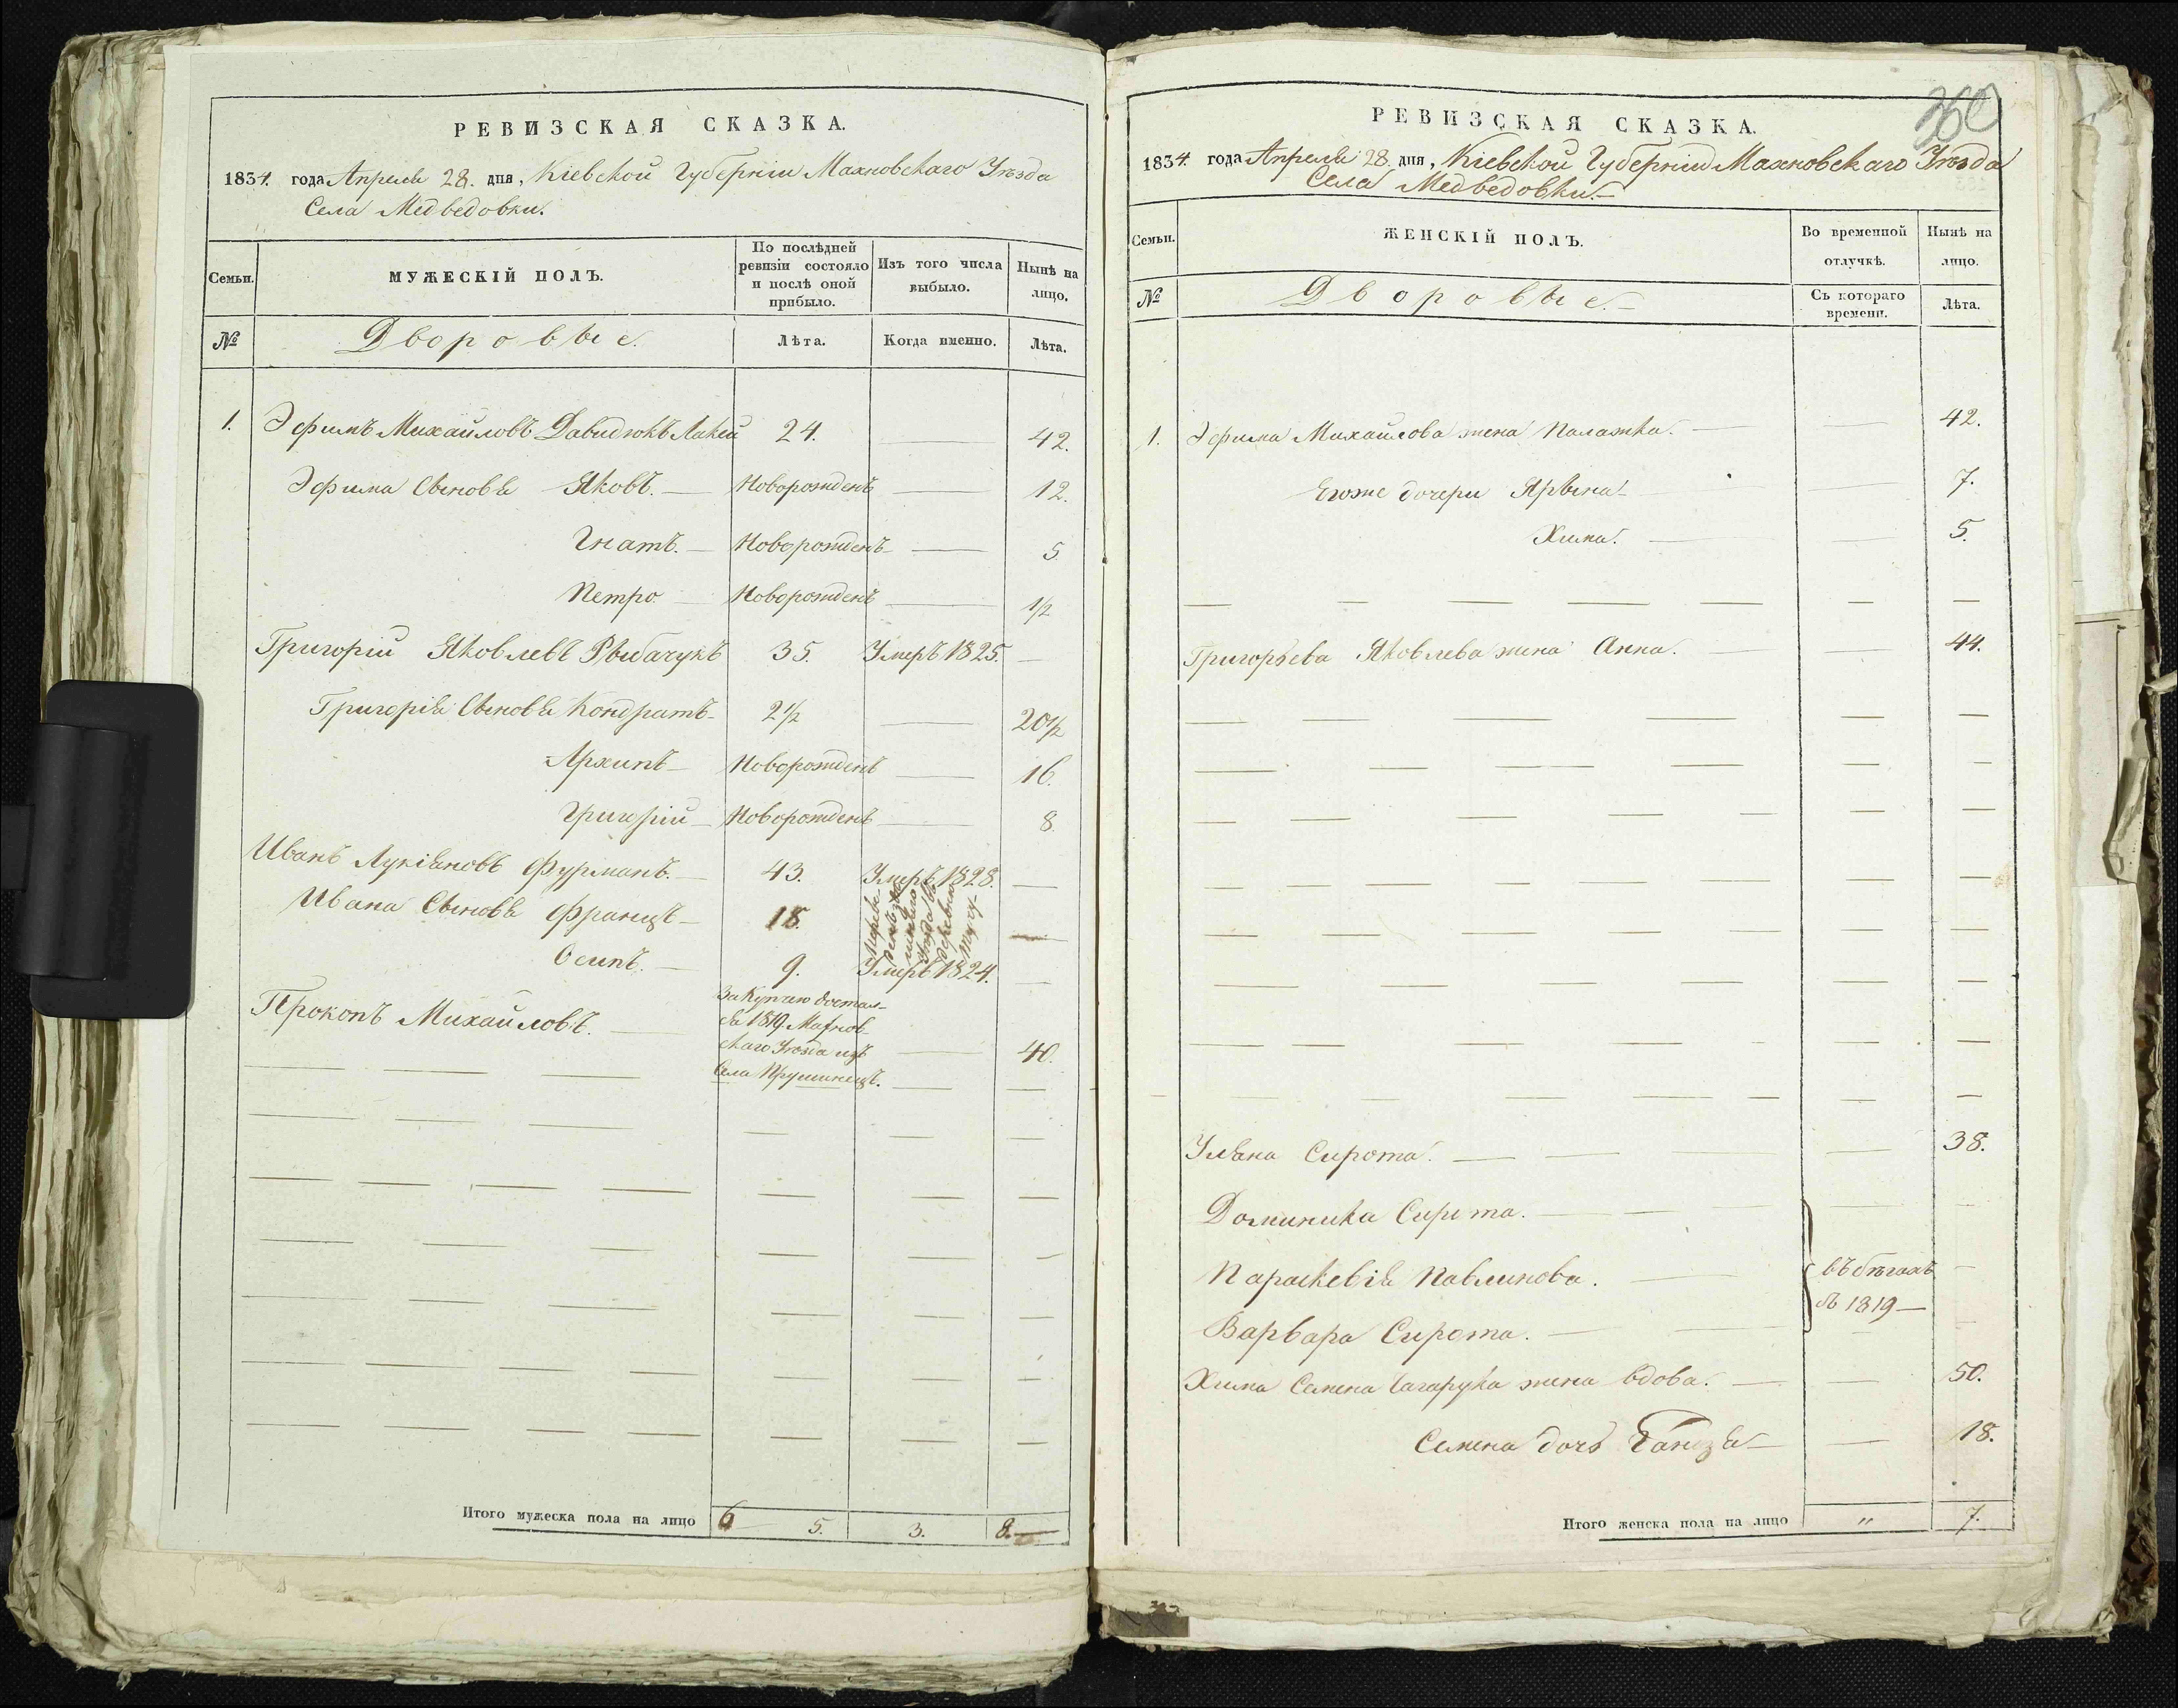 РЕВИЗСКАЯ СКАЗКА.
1834. года Апреля 28. дня, Кіевской Губерніи Махновскаго Уѣзда
Села Медведовки.
Семьи.
МУЖЕСКІЙ ПОЛЪ.
По послѣдней ревизіи состояло и послѣ оной прибыло.
Изъ того числа выбыло.
Нынѣ на лицо.
№
Дворовые.
Лѣта.
Когда именно.
Лѣта.
1. Эфимъ Михайловъ Давидюкъ Лакей 24. 42.
Эфима Сыновья Яковъ. Новорожденъ 12.
Гнатъ. Новорожденъ 5
Петро Новорожденъ 1/2
Григорій Яковлевъ Рыбачукъ 35. Умеръ 1825.
Григорія Сыновья Кондратъ 2 1/2 20 1/2
Архипъ Новорожденъ 16.
Григорій Новорожденъ 8.
Иванъ Лукіяновъ Фурманъ. 43. Умеръ 1828.
Ивана Сыновья Францъ 18.
Осипъ. 9. Умеръ 1824.
Прокопъ Михайловъ. 40.
За Купчею достал-
ся 1819. Махнов-
скаго Уѣзда изъ
Села
Итого мужеска пола на лицо 6 5. 3. 8.
360
РЕВИЗСКАЯ СКАЗКА.
1834. года Апреля 28. дня, Кіевской Губерніи Махновскаго Уѣзда
Села Медведовки.
Семьи.
ЖЕНСКІЙ ПОЛЪ.
Во временной отлучкѣ.
Нынѣ на лицо.
№
Дворовые.
Съ котораго времени.
Лѣта.
1. Эфима Михайлова жена Палажка. 42.
Егоже дочери Ярына 7.
Хима. 5.
Григорьева Яковлева жена Анна. 44.
Ульяна Сирота. 38.
Доминика Сирота.
Параскевія Павлинова. въ бѣгахъ
съ 1819
Варвара Сирота.
Хима Семена жена вдова. 50.
Семена дочь 18.
Итого женска пола на лицо " 7.